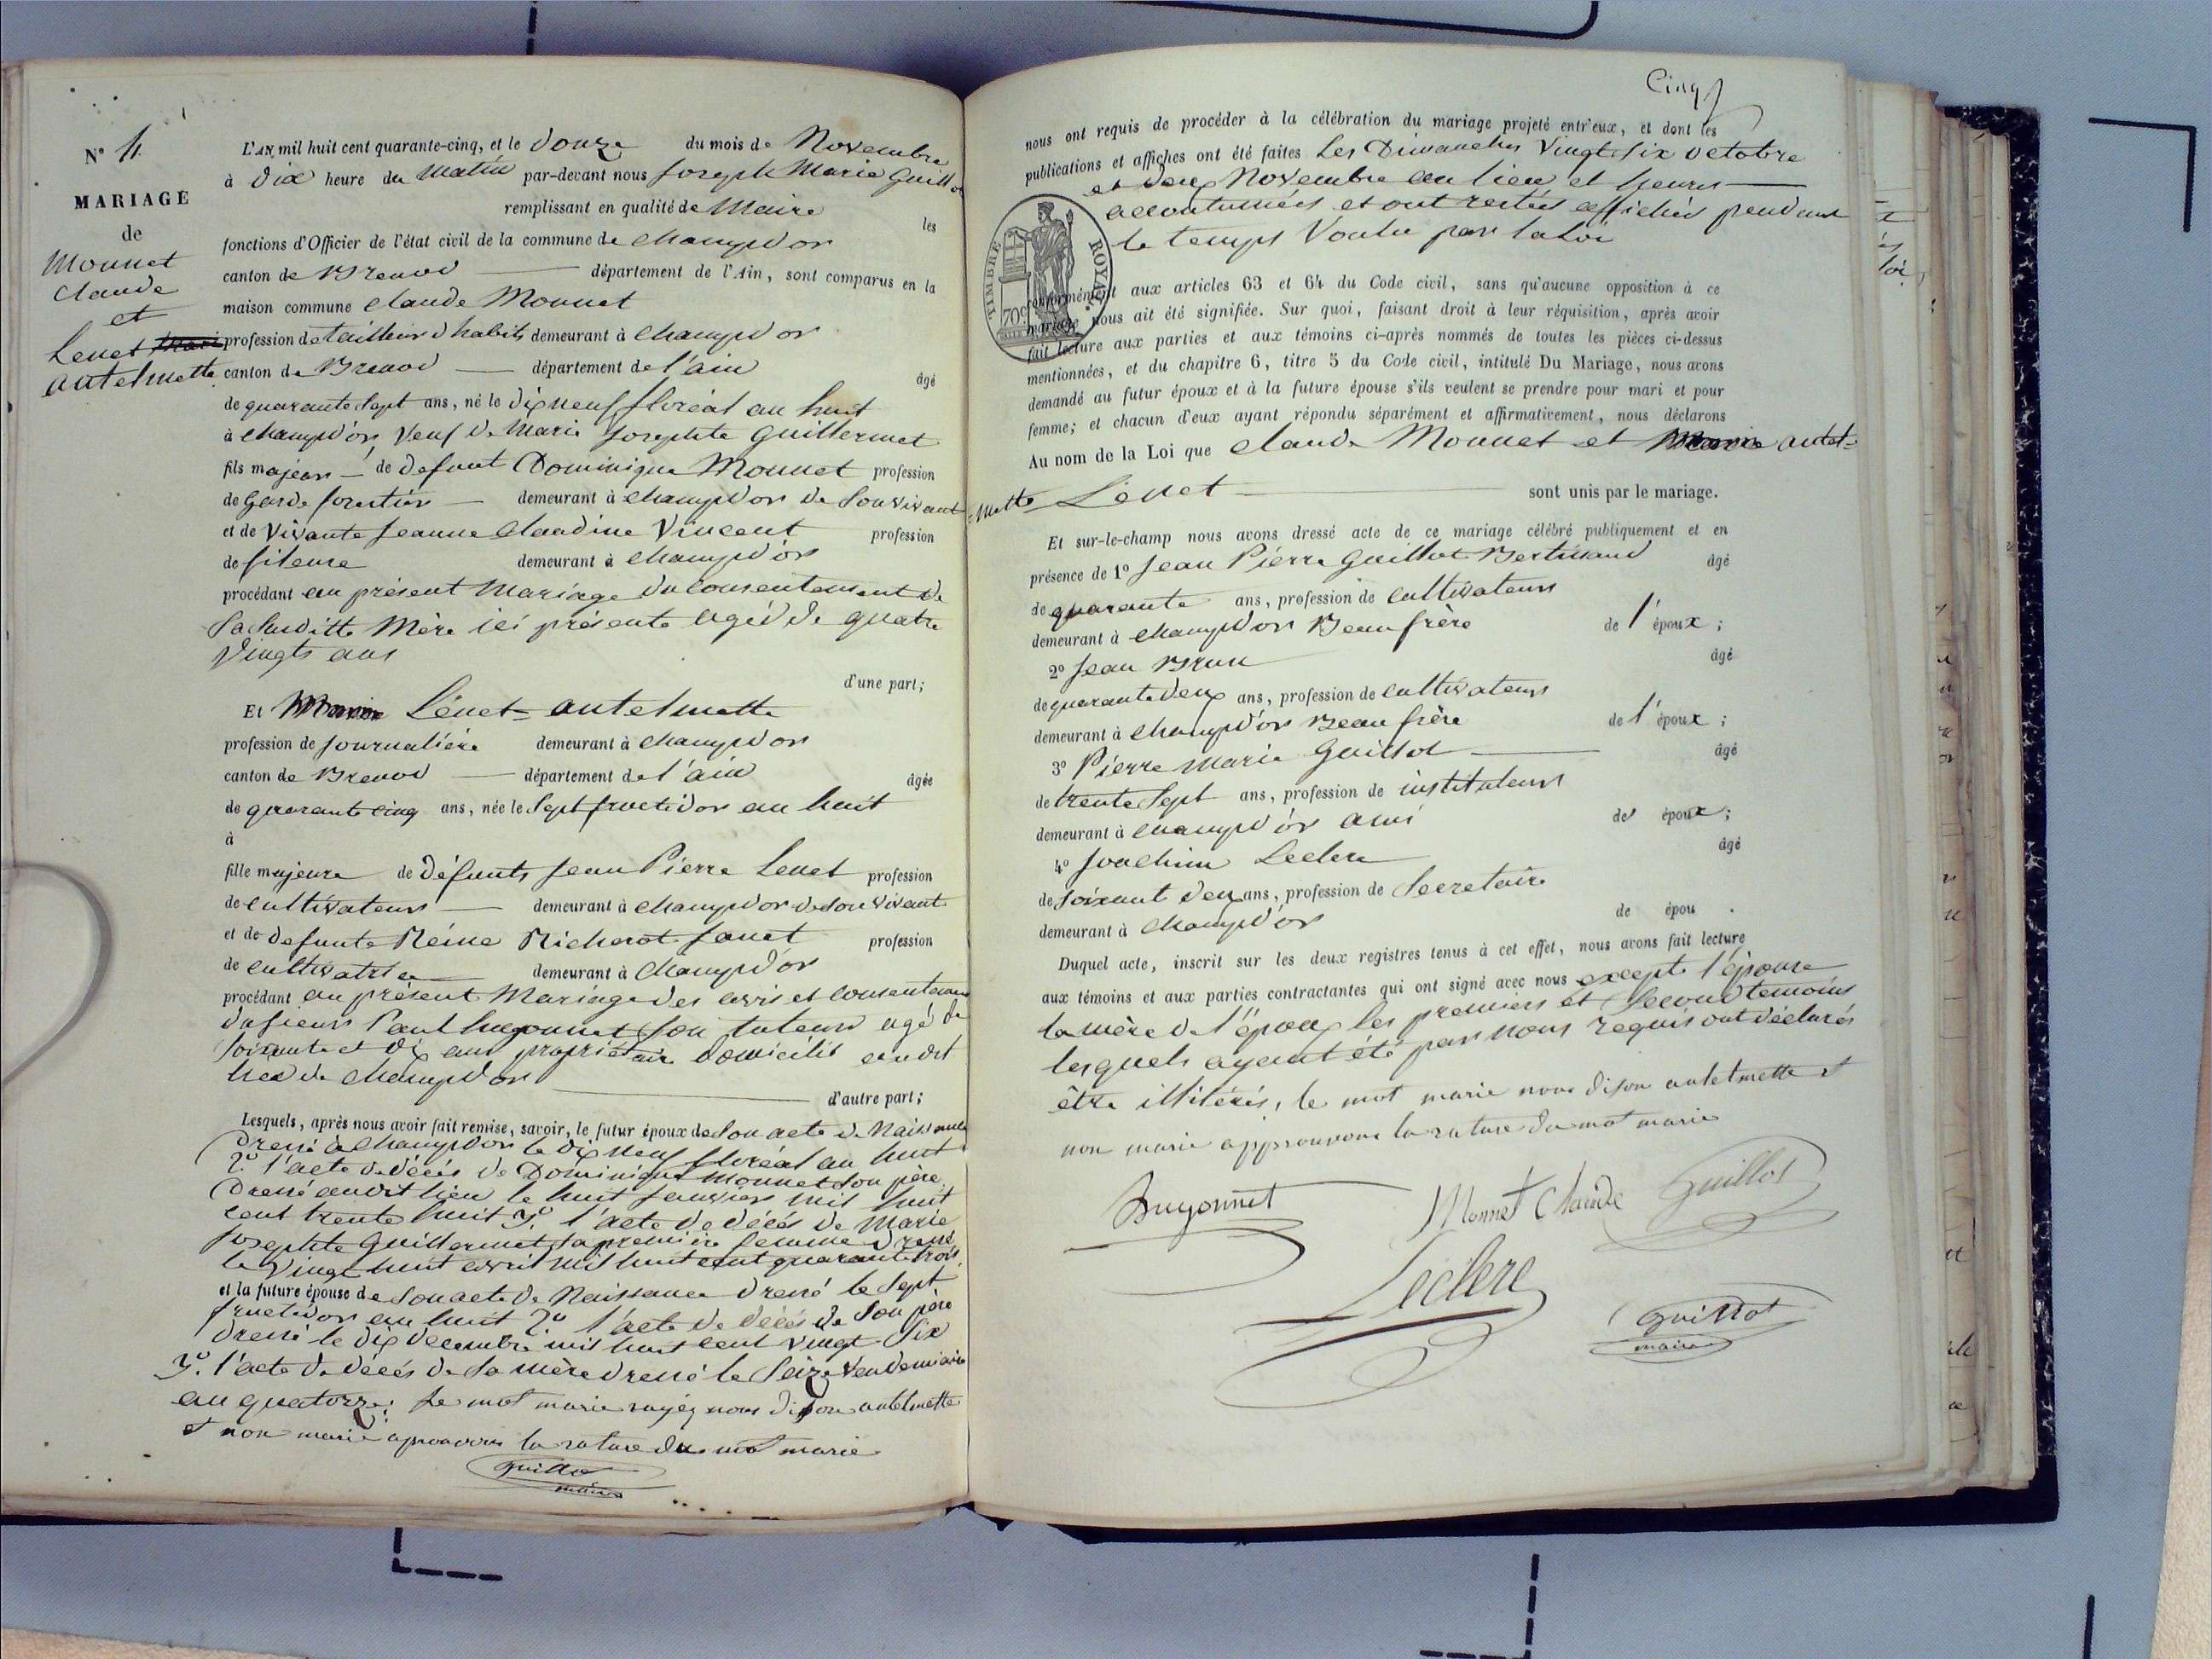 N° 4
MARIAGE
de
Monnet
Claude
et
Lenet Marie
antelmette
L'AN mil huit cent quarante-cinq, et le douze du mois de Novembre
à dix heure du matin par-devant nous Joseph Marie Guillot
remplissant en qualité de Maire les
fonctions d'Officier de l'état civil de la commune de champdor
canton de Brenod département de l'Ain, sont comparus en la
maison commune claude Monnet
profession de tailleur d'habits demeurant à champdor
canton de Brenod département de l'ain âgé
de quarante sept ans, né le dix neuf floréal an huit
à champdor veuf de Marie Josephte Guillermet
fils majeur de defunt Dominique Monnet profession
de Garde forestier demeurant à champdor de son vivant
et de vivante Jeanne Claudine Vincent profession
de fileuse demeurant à champdor
procédant au présent Mariage du consentement de
sa susditte Mère ici présente agéé de quatre
vingts ans
d'une part;
Et Marie Lénet antelmette
profession de Journalière demeurant à champdor
canton de Brenod département de l'ain âgée
de quarante cinq ans, née le sept fructidor an huit
à
fille majeure de défunts Jean Pierre Lenet profession
de cultivateur demeurant à champdor de son vivant
et de defunte Réine Richerot Janet profession
de cultivatrice demeurant à champdor
procédant au présent Mariage des avis et consentement
du sieur Paul hugonnet son tuteur agé de
soixante et dix ans propriétaire domicilié au dit
lieu de champdor
d'autre part;
Lesquels, après nous avoir fait remise, savoir, le futur époux de son acte de Naissance
dressé à champdor le dix neuf floréal an huit
2° l'acte de décés de Dominique Monnet son père
dressé audit lieu le huit janvier mil huit
cent trente huit 3° l'acte de décés de Marie
Josephte Guillermet sa première femme dressé
le vingt huit avril mil huit cent quarante trois
et la future épouse de son acte de Naissance dressé le sept
fructidor an huit 2° l'acte de décés de son père
dressé le dix decembre mil huit cent vingt six
3°. l'acte de décés de sa mère dressé le seize vendemiaire
an quatorze; le mot marie rayéz nous dison antelmette
et non marie aprouvons la rature du mot marie
Guillot
maire
Cinq
nous ont requis de procéder à la célébration du mariage projeté entr'eux, et dont les
publications et affiches ont été faites Les Dimanches vingt six octobre
et deux Novembre au lieu et heures
accoutumées et ont restés affichés pendant
le temps Voulu par la Loi
TIMBRE ROYAL
70c
conformément aux articles 63 et 64 du Code civil, sans qu'aucune opposition à ce
mariage nous ait été signifiée. Sur quoi, faisant droit à leur réquisition, après avoir
fait lecture aux parties et aux témoins ci-après nommés de toutes les pièces ci-dessus
mentionnées, et du chapitre 6, titre 5 du Code civil, intitulé Du Mariage, nous avons
demandé au futur époux et à la future épouse s'ils veulent se prendre pour mari et pour
femme; et chacun d'eux ayant répondu séparément et affirmativement, nous déclarons
Au nom de la Loi que claude Monnet et Marie antel-
-mette Lenet sont unis par le mariage.
Et sur-le-champ nous avons dressé acte de ce mariage célébré publiquement et en
présence de 1° Jean Pierre Guillot Bertinand âgé
de quarante ans, profession de cultivateur
demeurant à champdor Beau frère de l'époux;
2° Jean Brun âgé
de quarante deux ans, profession de cultivateur
demeurant à champdor Beau frère de l'époux;
3° Pierre Marie Guillot âgé
de trente sept ans, profession de instituteur
demeurant à champdor ami des époux;
4° Joachim Leclerc âgé
de soixant deux ans, profession de Secretaire
demeurant à champdor de épou .
Duquel acte, inscrit sur les deux registres tenus à cet effet, nous avons fait lecture
aux témoins et aux parties contractantes qui ont signé avec nous excepté l'épouse
la mère de l'époux les premiers et second temoins
lesquels ayant été par nous requis ont déclarés
être illitérés, le mot marie nous dison antelmette et
non marie approuvons la rature du mot marie
hugonnet
Monnet Claude
Guillot
Leclerc
Guillot
maire